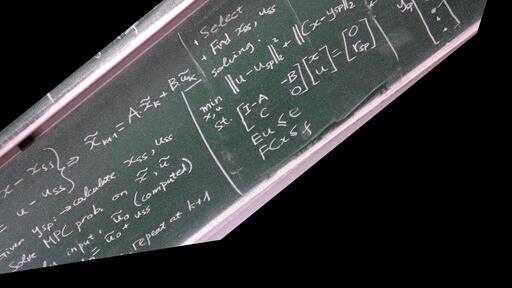 x - xss
= u - uss } => x̃k+1 = A·x̃k + B ũk
Given yspi → calculate xss, uss
Solve MPC prob. on x̃, ũ
input, ũo (computed)
= ũo + uss
repeat at k+1
• Select
• Find xss, uss
solving:
min x,u ‖u - usp‖² + ‖Cx - ysp‖²
st. [I-A -B; C 0] [x; u] = [0; rsp]
Eu ≤ e
FCx ≤ f
ysp [